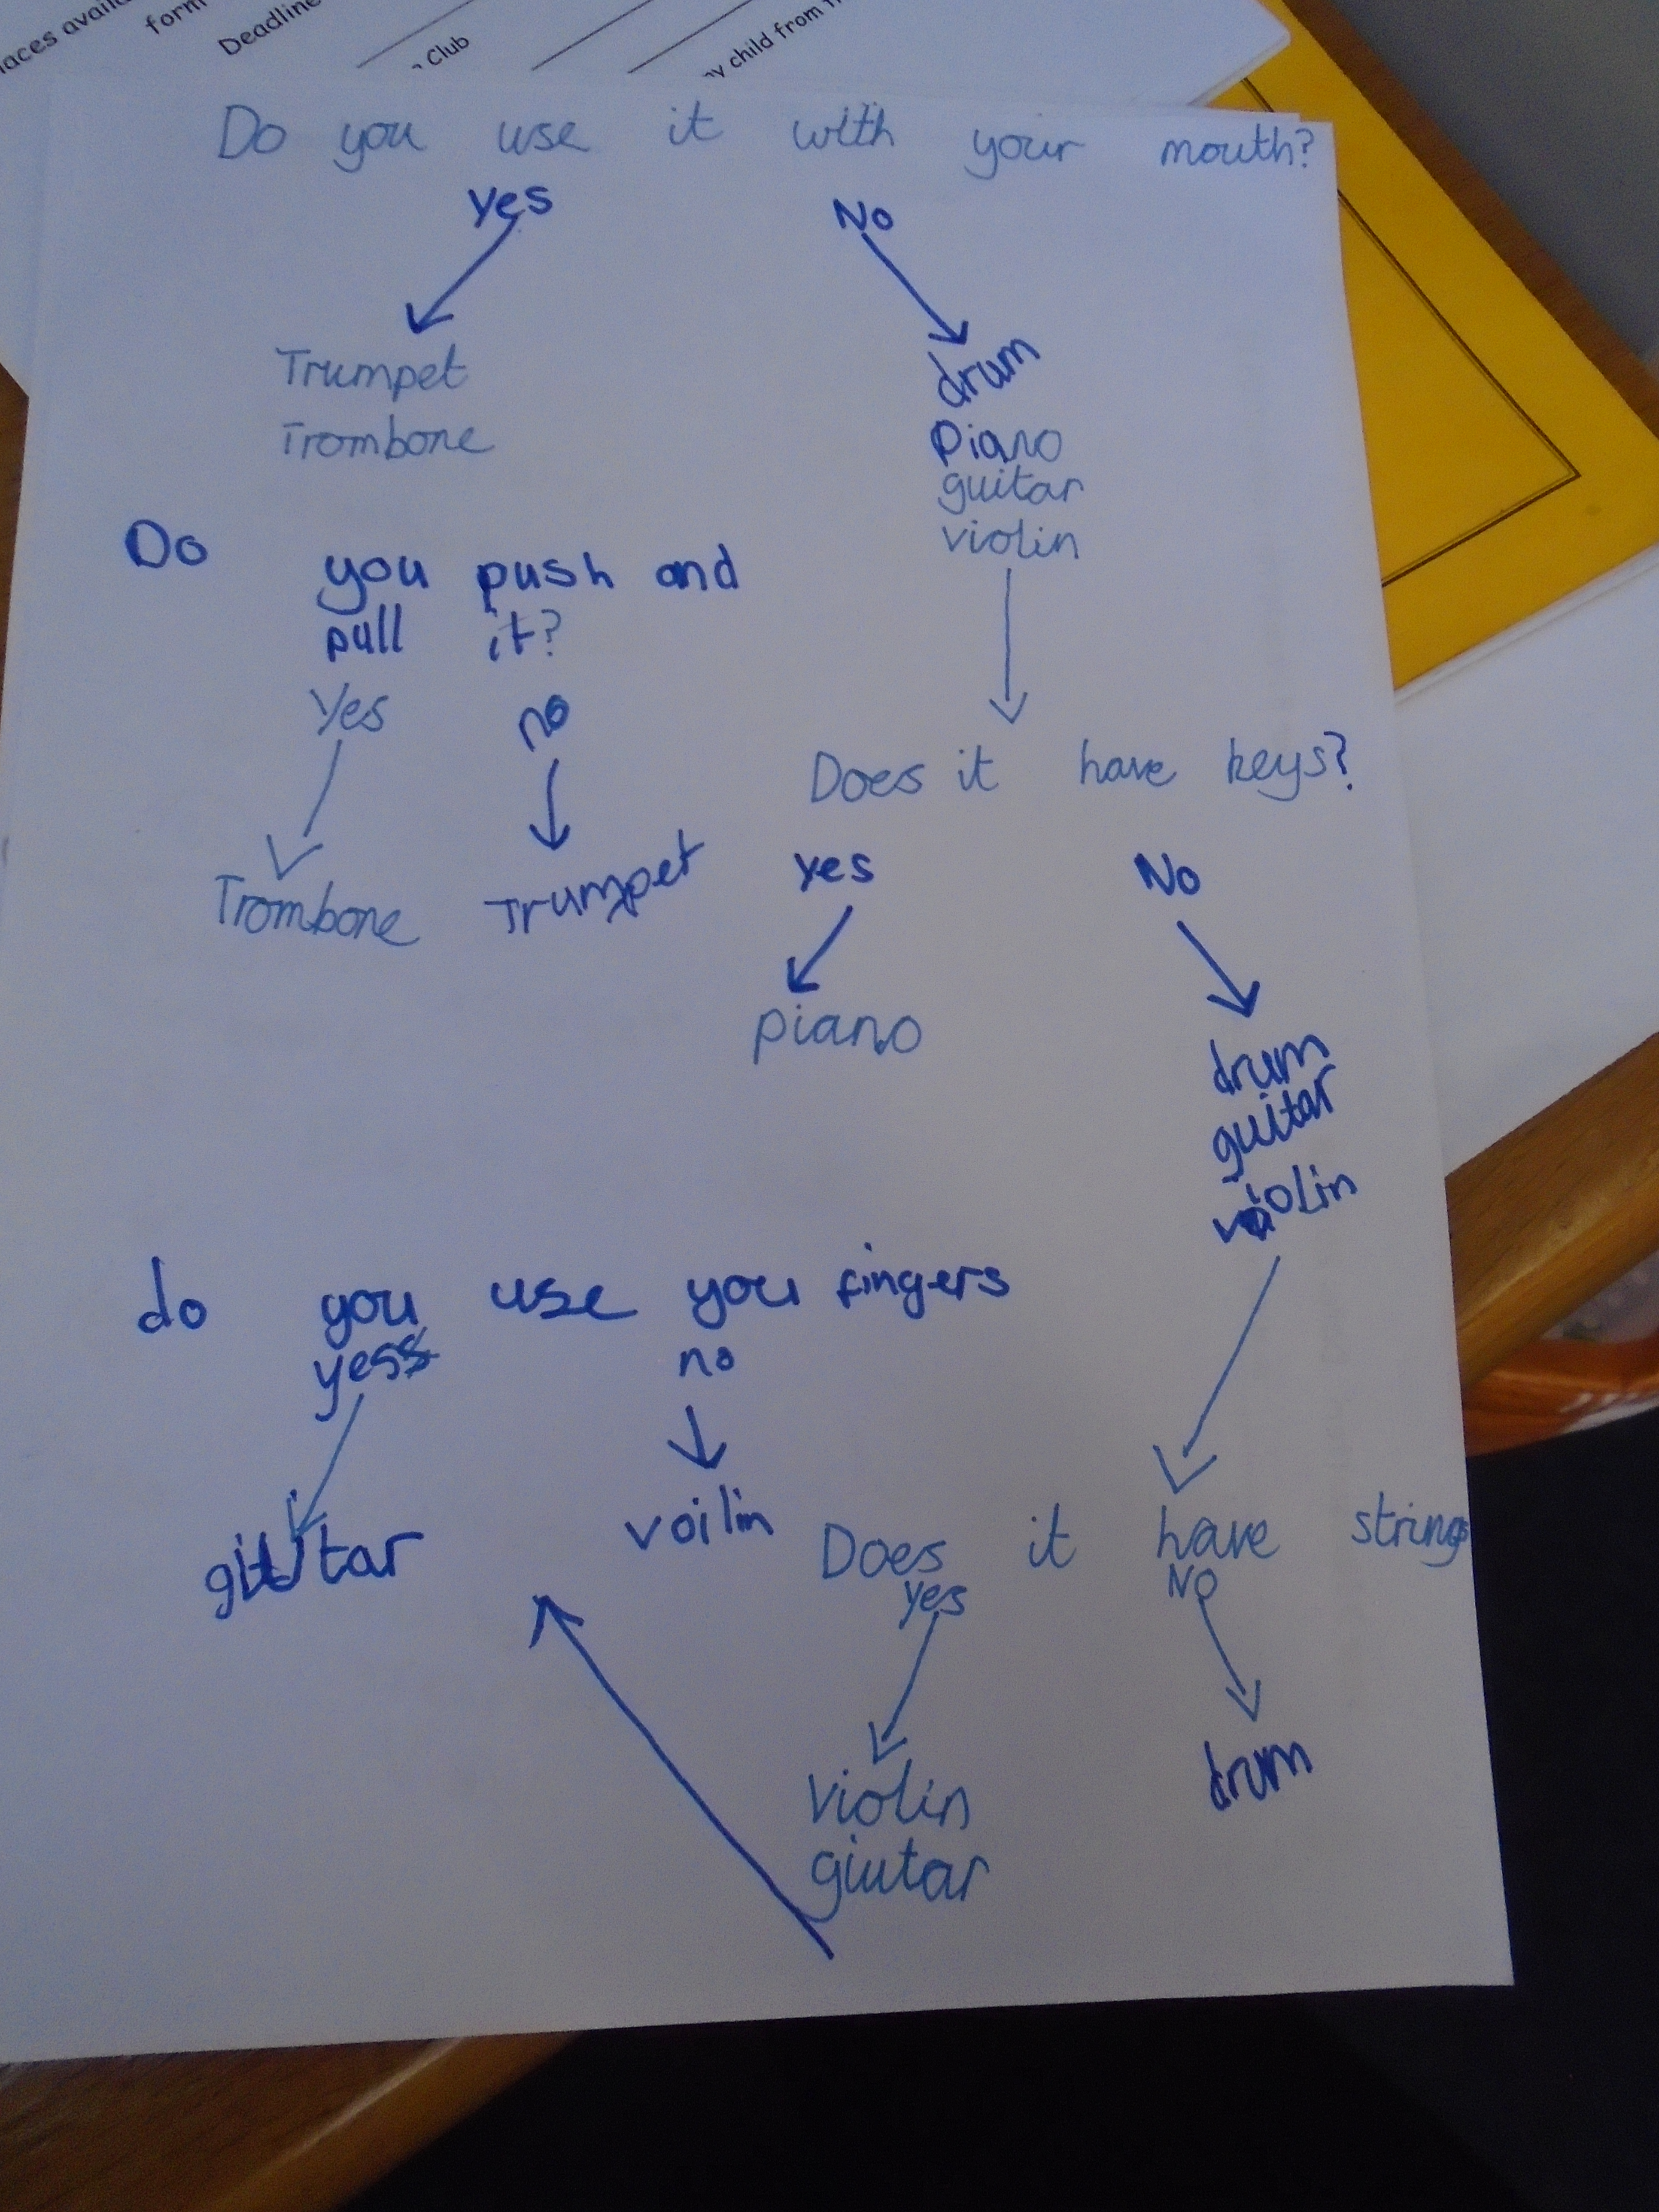 aces avail
form
Deadline
Club
y child from
Do you use it with your mouth?
Yes No
Trumpet
Trombone
drum
Piano
guitar
violin
Do you push and
pull it?
Yes no
Trombone Trumpet
Does it have keys?
Yes No
piano
drum
guitar
violin
do you use you fingers
yes no
voilin
Does it have strings
Yes NO
violin
giutar
drum